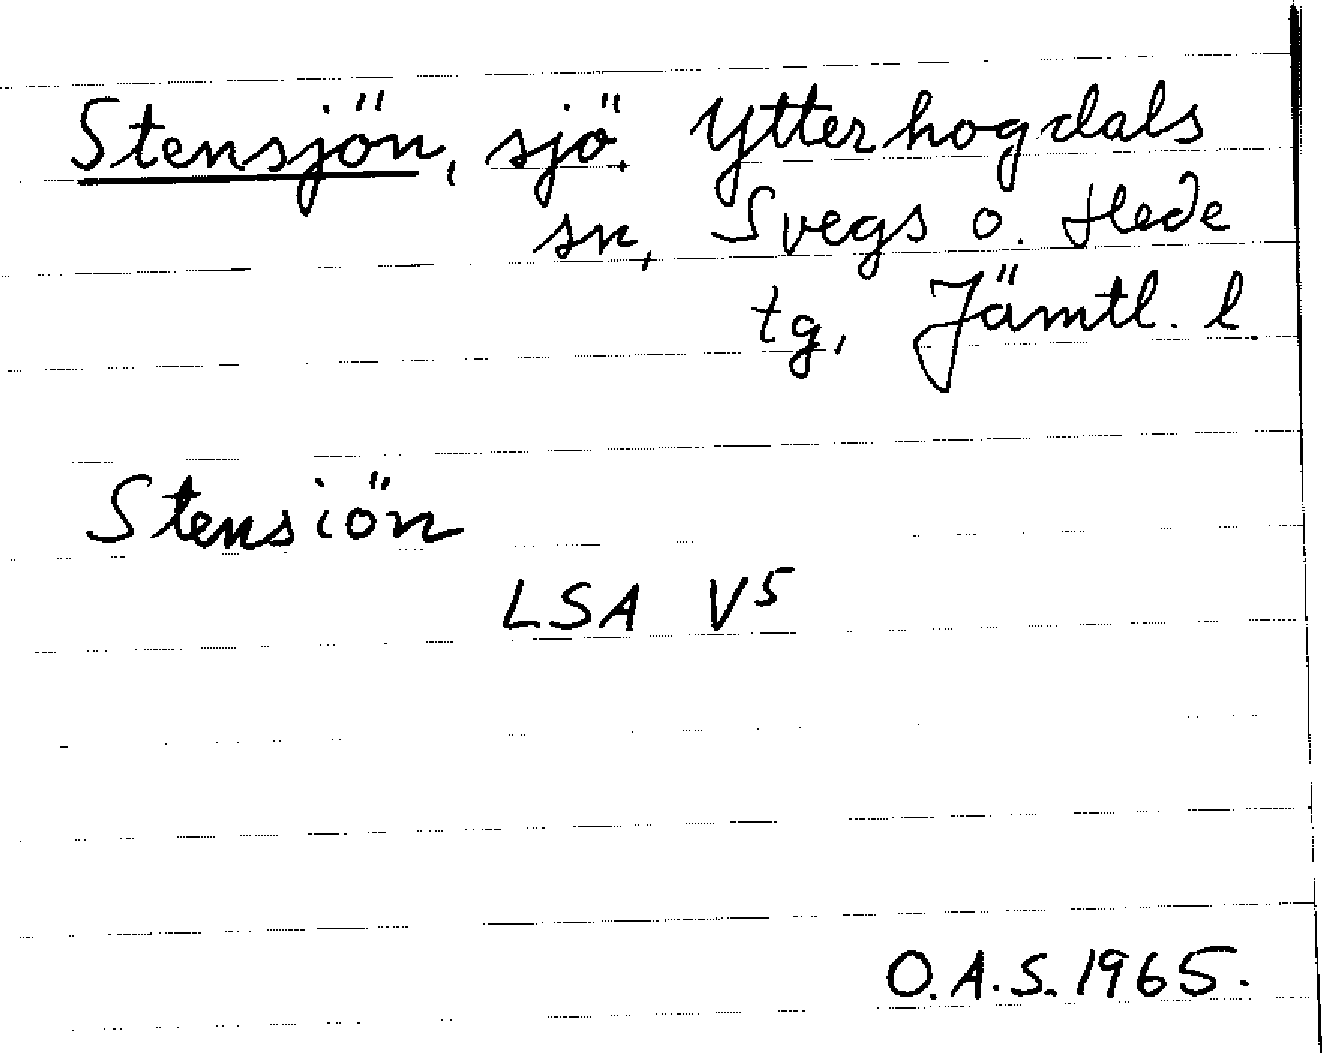 Stensjön, sjö. Ytterhogdals
sn, Svegs o. Hede
tg, Jämtl. l
Stensiön
LSA V5
O.A.S. 1965.